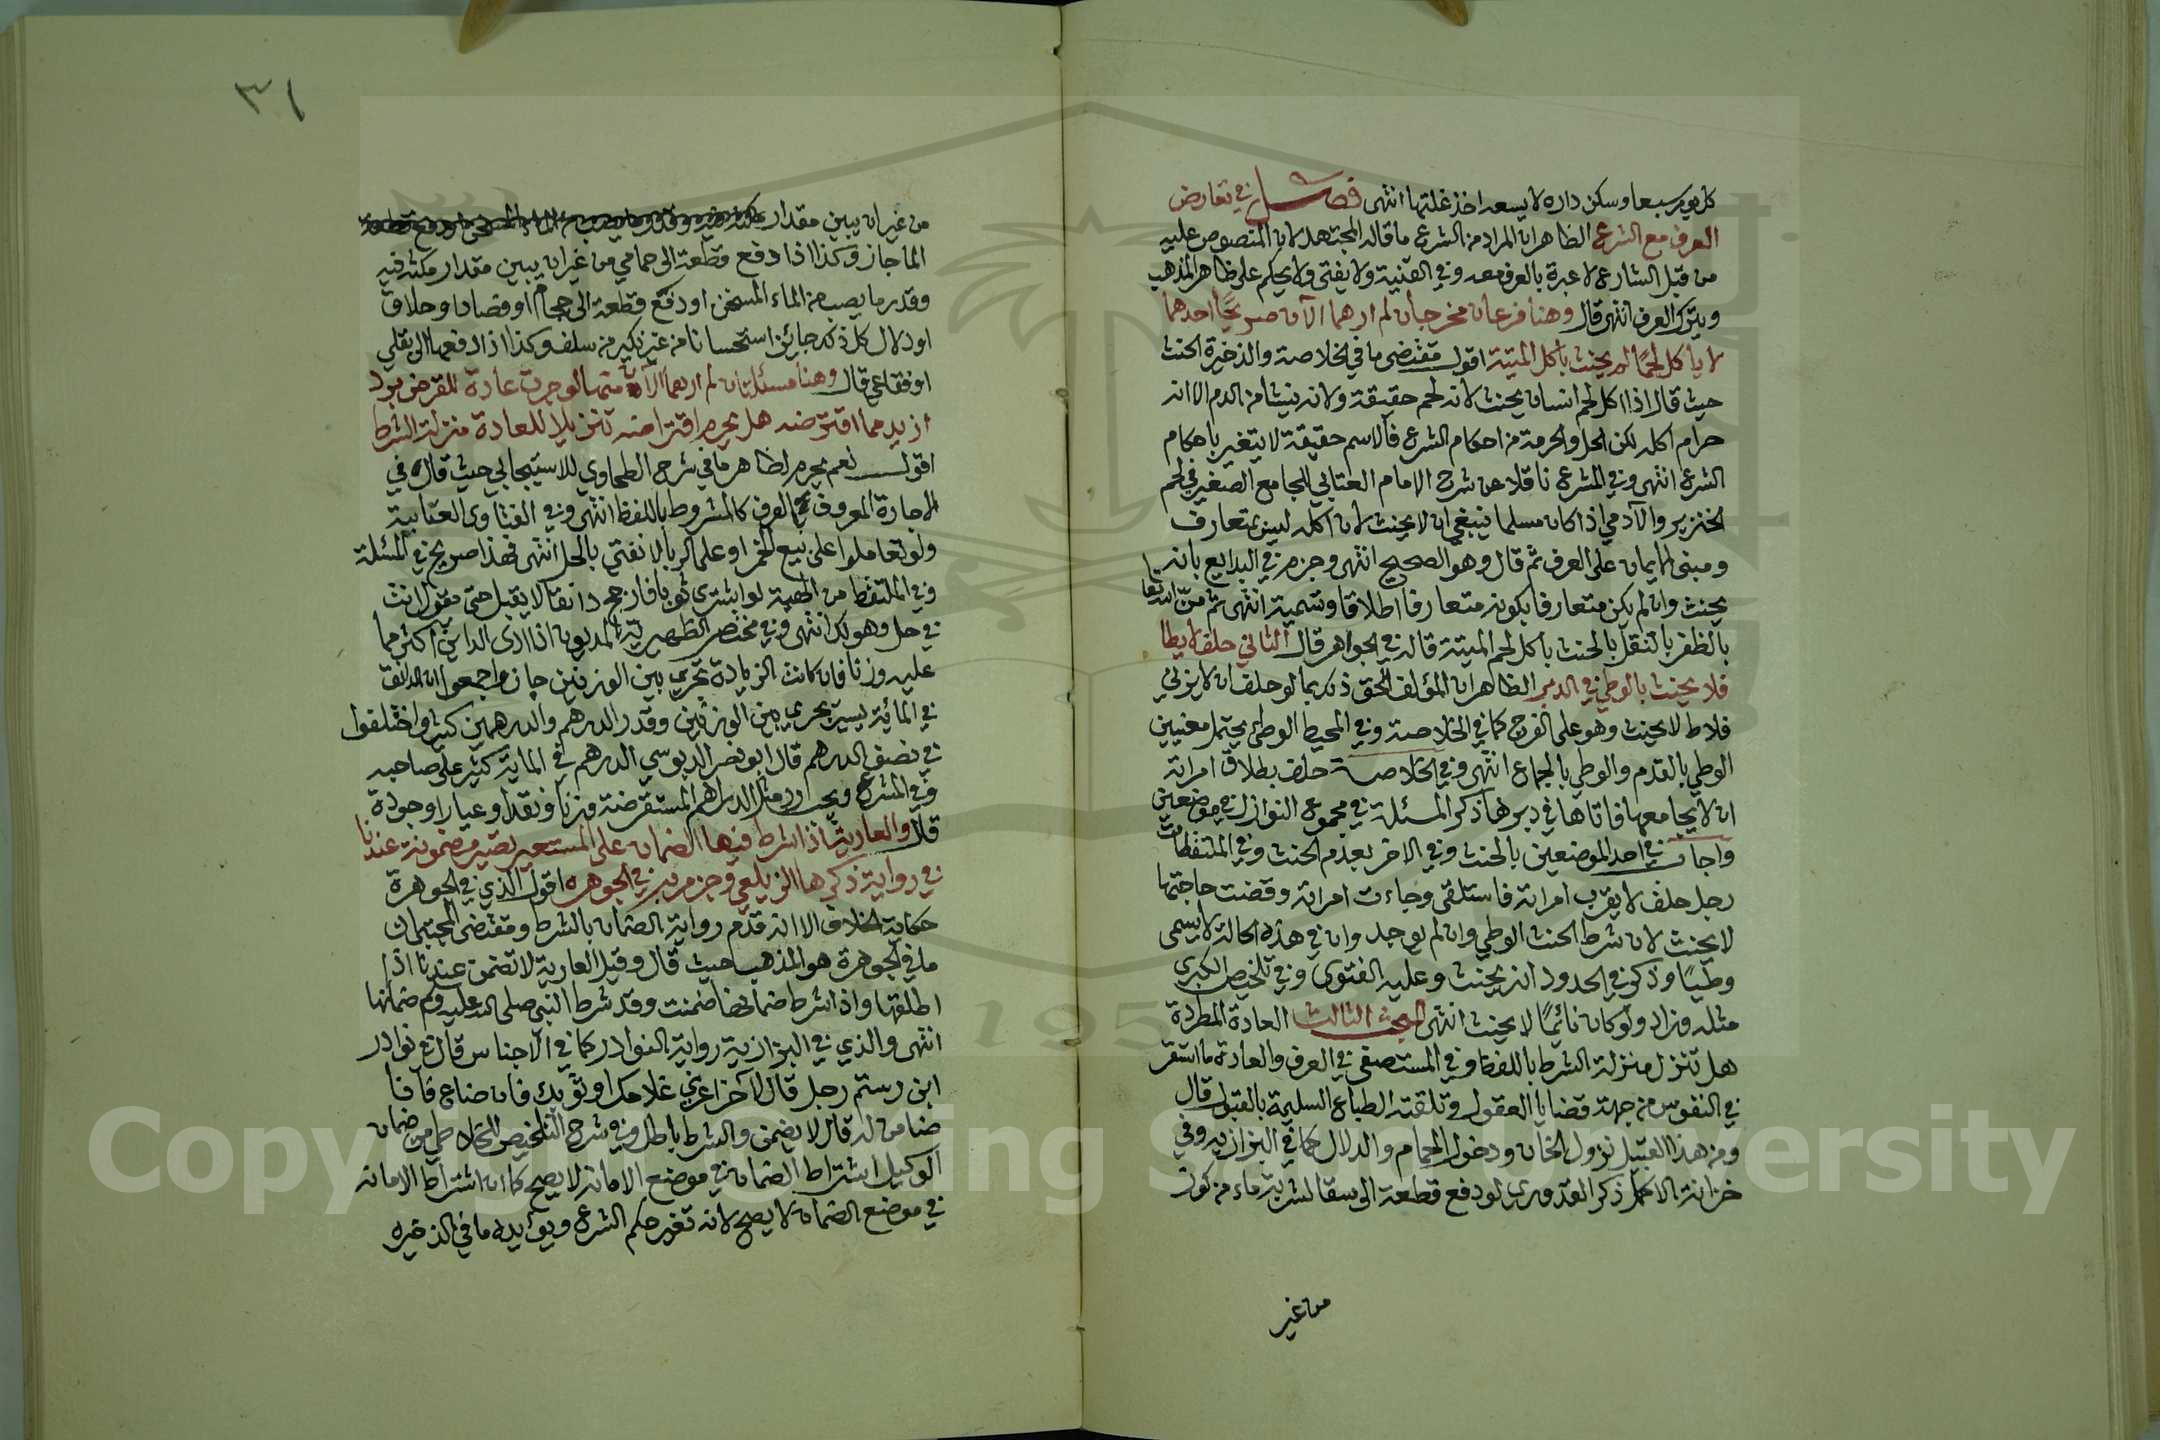 كل يوم سبعا وسكن داره لا يسعه اخذ غلتها انتهى فصل في تعارض
العرف مع الشرع الظاهر ان المراد من الشرع ما قاله المجتهد لان المنصوص عليه
من قبل الشارع لا عبرة بالعرف معه وفي القنية ولا يفتى ولا يحكم على ظاهر المذهب
ويترك العرف انتهى قال وهنا فرعان مخرجان لم ارهما الآن صريحًا احدهما
لا يأكل لحمًا لم يحنث بأكل الميتة اقول مقتضى ما في الخلاصة والذخيرة الحنث
حيث قال اذا اكل لحم انسان يحنث لانه لحم حقيقة ولانه ينشا من الدم الا انه
حرام اكله لكن الحل والحرمة من احكام الشرع فالاسم حقيقة لا يتغير باحكام
الشرع انتهى وفي المشرع ناقلا عن شرح الامام العتابي للجامع الصغير في لحم
الخنزير والآدمي اذا كان مسلما فينبغي ان لا يحنث لان اكله ليس بمتعارف
ومبنى الايمان على العرف ثم قال وهو الصحيح انتهى وجزم في البدايع بانه
يحنث وان لم يكن متعارفا بكونه متعارفا اطلاقا وتسمية انتهى ثم منّ الله تعا
بالظفر بالنقل بالحنث باكل لحم الميتة قاله في الجواهر قال الثاني حلف لا يطا
فلا يحنث بالوطي في الدبر الظاهر ان المؤلف الحق ذلك بما لو حلف ان لا يزني
فلاط لا يحنث وهو على الفرج كما في الخلاصة وفي المحيط الوطئ يحتمل معنيين
الوطي بالقدم والوطي بالجماع انتهى وفي الخلاصة حلف بطلاق امراته
ان لا يجامعها فاتاها في دبرها ذكر المسئلة في مجموع النوازل في موضعين
واجاب في احد الموضعين بالحنث وفي الاخر بعدم الحنث وفي الملتقطات
رجل حلف لا يقرب امراته فاستلقى وجاءت امراته وقضت حاجتها
لا يحنث لان شرط الحنث الوطي وان لم يوجد وان في هذه الحالة لا يسمى
وطيًا وذكر في الحدود انه يحنث وعليه الفتوى وفي تلخيص الكبرى
مثله وزاد ولو كان نائمًا لا يحنث انتهى المبحث الثالث العادة المطردة
هل تنزل منزلة الشرط باللفظ وفي المستصفى في العرف والعادة ما استقر
في النفوس من جهة قضايا العقول وتلقته الطباع السليمة بالقبول قال
ومن هذا القبيل نزول الخان ودخول الحمام والدلال كما في البزازيه وفي
خزانة الاكمل ذكر القدوري لو دفع قطعة الى سقا لشربة ماء من كوز
من غير
٣١
من غير ان يبين مقدار
الما جاز وكذا اذا دفع قطعة الى حمامي من غير ان يبين مقدار مكثه فيه
وقدر ما يصب من الماء المسخن او دفع قطعة الى حجام او فصاد او حلاق
او دلال كل ذلك جائز استحسانا من غير نكير من سلف وكذا اذا دفعها الى بقلي
او فقاعي قال وهنا مسئلتان لم ارهما الآن منها لو جرت عادة المقرض برد
ازيد مما اقترضه هل يحرم اقتراضه تنزيلا للعادة منزلة الشرط
اقول نعم يحرم لظاهر ما في شرح الطحاوي للاسبيجابي حيث قال في
الاجارة المعروف في العرف كالمشروط باللفظ انتهى وفي الفتاوى العتابية
ولو تعاملوا على بيع الخمر او على الربا لا نفتي بالحل انتهى فهذا صريح في المسئلة
وفي الملتقط من الهبة لو اشترى ثوبا فارجح دانقا لا يقبل حتى يقول انت
في حل وهو لك انتهى وفي مختصر الظهيرية المديون اذا ادى الدائن اكثر مما
عليه وزنا فان كانت الزيادة تجري بين الوزنين جاز واجمعوا ان الدانق
في المائة يسير يجري بين الوزنين وقدر الدرهم والدرهمين كثير واختلفوا
في نصف الدرهم قال ابو نصر الدبوسي الدرهم في الماية كثير على صاحبه
وفي المشرع ويجب رد مثل الدراهم المستقرضة وزنا ونقدا وعيارا وجودة
قال والعارية اذا شرط فيها الضمان على المستعير تصير مضمونة عندنا
في رواية ذكرها الزيلعي وجزم به في الجوهره اقول الذي في الجوهرة
حكاية الخلاف الا انه قدم رواية الضمان بالشرط ومقتضى المجتبى ان
ما في الجوهرة هو المذهب حيث قال وقيل العارية لا تضمن عندنا اذا
اطلقها واذا شرط ضمانها ضمنت وقد شرط النبي صلى الله عليه وسلم ضمانها
انتهى والذي في البزازية رواية النوادر كما في الاجناس قال في نوادر
ابن رستم رجل قال لآخر اعرني غلامك او ثوبك فان ضاع فانا
ضامن له قال لا يضمن والشرط باطل وفي شرح التلخيص من ضمان
الوكيل اشتراط الضمان في موضع الامانة لا يصح كما ان اشتراط الامانة
في موضع الضمان لا يصح لانه تغيير حكم الشرع ويؤيده ما في الذخيره
Copyright © King Saud University
195